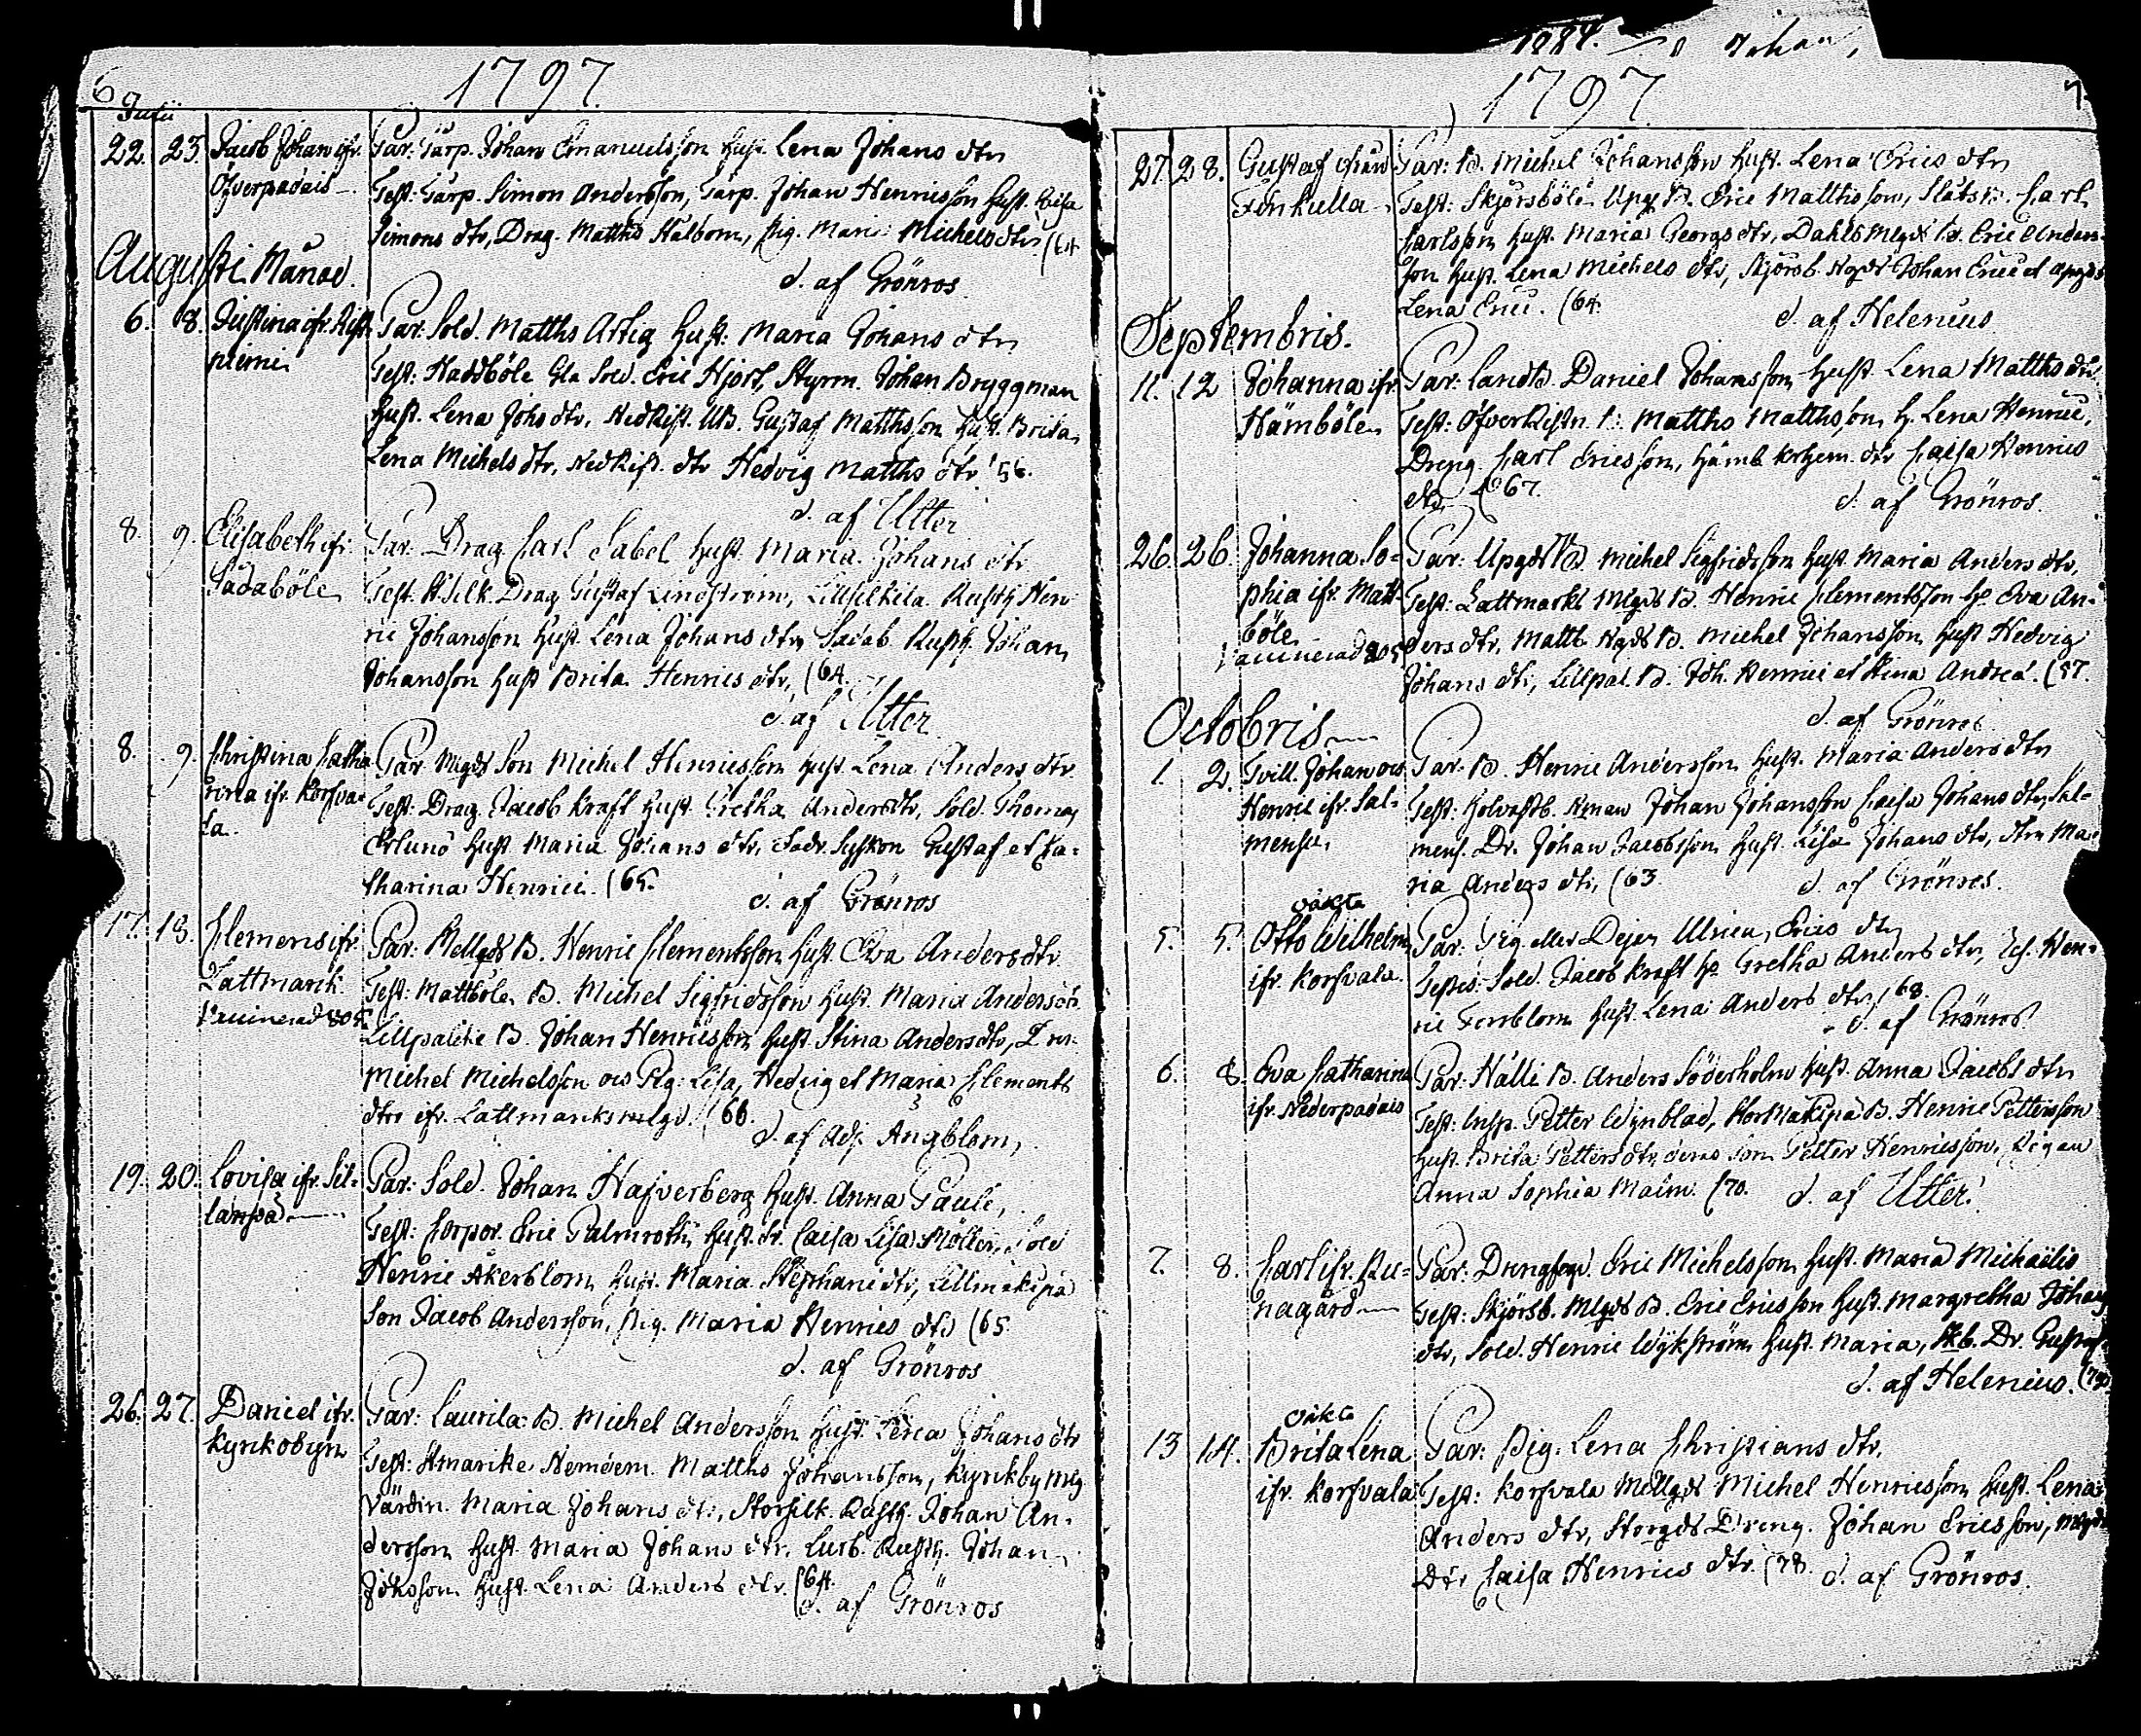 6
1797.
Julii
22. 23. Jacob Johan ifr. Par: Torp. Johan Emanuelsson hust. Lena Johans dtr
Öfverpadais Test: Torp. Simon Andersson, Torp. Johan Henricsson hust. Lisa
Simons dtr, Drag. Matths Stålbom, Pig. Maria Michels dtr (64
d. af Grönros
Augusti Månad.
6. 8. Justina ifr. Rist- Par: Sold. Matths Artig hust: Maria Johans dtr
niemi Test: Haddböle Gla Sold. Eric Hjort, Styrm. Johan Bryggman
hust. Lena Johs dtr, NedRist. UB. Gustaf Matthsson hust. Brita
Lena Michels dtr, NedRist. dtr Hedvig Matths dtr 56.
d. af Utter
8. 9. Elisabeth ifr. Par: Drag Carl Sabel hust. Maria Johans dtr
Sadaböle Test. Drag Gustaf Lindström, Lillsilkila Rusth Hen
ric Johansson hust. Lena Johans dtr, Sadab. Rusth. Johan
Johansson hust Brita Henrics dtr, (64.
d. af Utter
8. 9. Christina Catha- Par Mlgds Son Michel Henricsson hust. Lena Anders dtr
rina ifr. Korsva- Test: Drag. Jacob Kraft hust. Gretha Anders dtr, Sold. Thomas
la. Erlund hust Maria Johans dtr, Syskon Gustaf et Ca-
tharina Henrici. (65.
d. af Grönros
17. 18. Clemens ifr. Par: Mellgds B. Henric Clementsson hust. Eva Anders dtr
Lattmark. Test: Mattböle B. Michel Sigfridsson hust. Maria Anders dtr
Vaccinerad 805 Lillpalike B. Johan Henricsson hust. Stina Anders dtr,
Michel Michelsson och Pig: Lisa, Hedvig et Maria Clements
dtr ifr. Lattmarks mlgd. (66.
d. af Adj. Ångblom,
19. 20. Lovisa ifr. Sil- Par: Sold. Johan Hafverberg hust. Anna Pauli,
lanpä Test: Corpor. Eric Palmroth hust. Caisa Lisa Möller, Sold
Henric Åkerblom hust. Maria Stephani dtr, Lillmäkipä
Son Jacob Andersson, Pig. Maria Henrics dtr (65.
d. af Grönros
26. 27. Daniel ifr. Par: Laurila B. Michel Andersson hust. Lena Johans dtr
Kyrkobyn Test: Matths Johansson, Kyrkby Mlg
Värdin. Maria Johans dtr, Storsilk. Rusth. Johan An-
dersson hust Maria Johans dtr. Rusth. Johan
Johsson hust. Lena Anders dtr. (64.
d. af Grönros
1884. Johan
1797.
7
27. 28. Gustaf ifrån Par: B. Michel Johansson hust. Lena Erics dtr
Finkulla Test: Skjörsböle Upg B. Eric Matthsson, Carl
Carlsson hust. Maria Georgs dtr, Dahls Mlgd B. Eric Anders-
son hust. Lena Michels dtr, Skjörsb. Johan Erici et
Lena Erici. (64.
d. af Helenius
Septembris.
11. 12 Johanna ifr. Par: LandB. Daniel Johansson hust Lena Matths dtr
Hämböle Test: ÖfverRistn. B: Matths Matthsson, h. Lena Henrici,
Dreng Carl Ericsson, Hämb. dtr Caisa Henrics
dtr (67.
d. af Grönros.
26. 26. Johanna So- Par: Upgds B. Michel Sigfridsson hust Maria Anders dtr,
phia ifr. Matt- Test: Lattmarks Mlgds B. Henric Clementsson h. Eva An-
böle ders dtr, Mattb. Ngds B. Michel Johansson hust Hedvig
Vaccinerad 805 Johans dtr, Lillpal. B. Joh. Henrici et Stina Andreæ. (57.
d. af Grönros
Octobris
1. 2. Tvill. Johan och Par: B. Henric Andersson hust. Maria Anders dtr
Henric ifr. Sal- Test: Johan Johansson Caisa Johans dtr, Sal-
mensu mens. Dr. Johan Jacobsson hust. Lisa Johans dtr, dtr Ma-
ria Anders dtr, (63.
d. af Grönros.
oäkta
5. 5. Otto Wilhelm Par: Pig. eller Dejen Ulrica Erics dtr
ifr Korsvala. Testis: Sold. Jacob Kraft h. Gretha Anders dtr, Hen-
ric Fernblom hust Lena Anders dtr, (68.
d. af Grönros
6. 8. Eva Catharina Par: Hälli B. Anders Söderholm hust. Anna Jacobs dtr
ifr. Nederpadais Test: Insp. Petter Wynblad, Stormäkipä B. Henric Pettersson
hust. Brita Petters dtr deras Son Petter Henricsson, Pigan
Anna Sophia Malm. (70. d. af Utter.
7. 8. Carl ifr. Ku- Par: Drengfogd. Eric Michelsson hust. Maria Michaëlis
nagård Test: Skjörsb. Mlgds B. Eric Ericsson hust. Margretha Johans
dtr, Sold. Henric Wykström hust. Maria, Skb. Dr. Gustaf
d. af Helenius.
oäkta
13 14. Brita Lena Par: Pig. Lena Christians dtr.
ifr. Korsvala Test: Korsvala Mellgds Michel Henricsson hust. Lena
Anders dtr, Storgds Dreng. Johan Ericsson, Mlgds
Dtr Caisa Henrics dtr. (78. d. af Grönros.